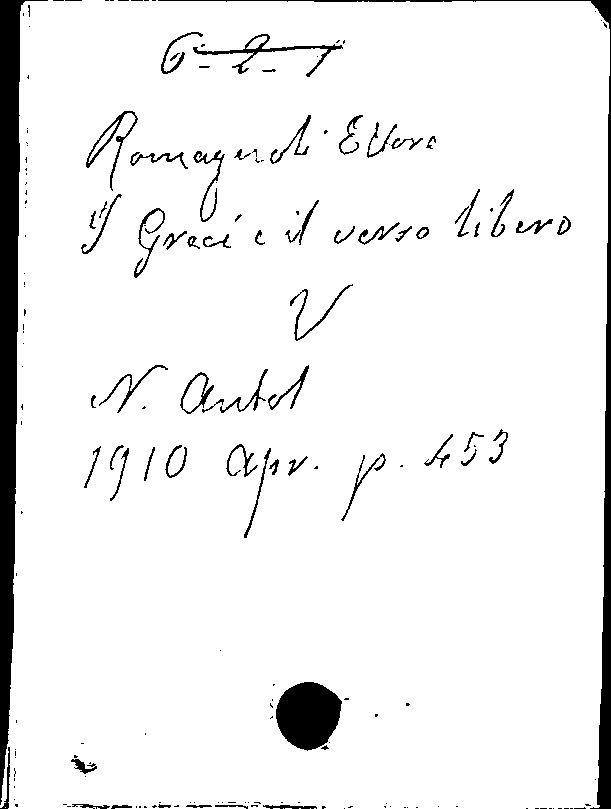 6-2-1
Romagnoli Ettore
I Greci e il verso libero
V
N. Antol
1910 Apr. p. 453